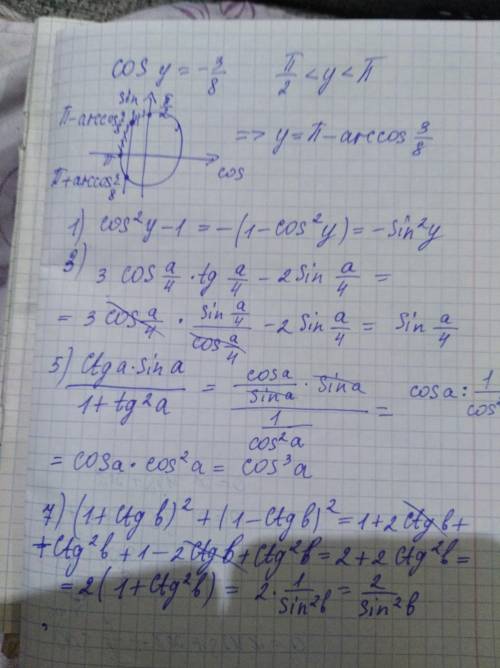 cos y = -3/8    π/2 < y < π
sin
π/2
π - arccos 3/8
=> y = π - arccos 3/8
π
cos
π + arccos 3/8
1) cos²y - 1 = -(1 - cos²y) = -sin²y
3) 3 cos a/4 · tg a/4 - 2 sin a/4 =
= 3 cos a/4 · sin a/4 / cos a/4 - 2 sin a/4 = sin a/4
5) ctg a · sin a / 1 + tg²a = cos a / sin a · sin a / 1/cos²a = cos a : 1/cos
= cos a · cos²a = cos³a
7) (1 + ctg b)² + (1 - ctg b)² = 1 + 2 ctg b +
+ ctg²b + 1 - 2 ctg b + ctg²b = 2 + 2 ctg²b =
= 2(1 + ctg²b) = 2 · 1/sin²b = 2/sin²b